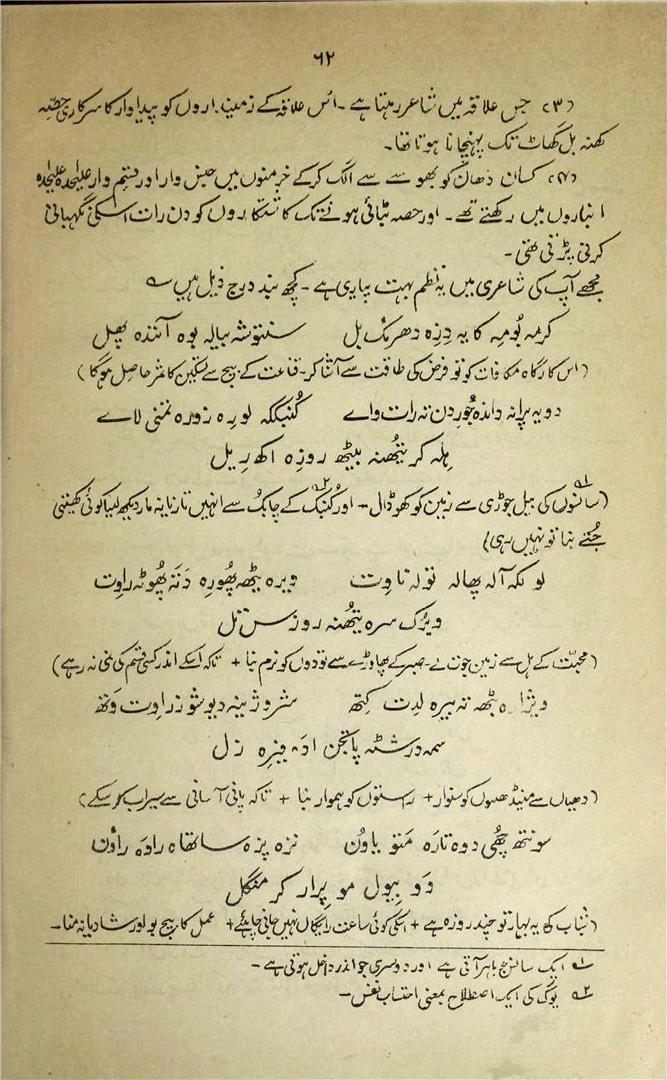 ۶۲
(۳) جس علاقہ میں شاعر رہتا ہے ۔ اُس علاقہ کے زمینداروں کو پیداوار کا سرکاری حصّہ
کھنہ بل گھاٹ تک پہنچانا ہوتا تھا۔
(۴) کسان دھان کو بھوسے سے الگ کرکے خرمنوں میں جنس وار اور قسم وار علیٰحدہ علیٰحدہ
انباروں میں رکھتے تھے ۔ اور حصہ بٹائی ہونے تک کاشتکاروں کو دن رات اسکی نگہبانی
کرنی پڑتی تھی ۔
مجھے آپ کی شاعری میں یہ نظم بہت پیاری ہے ۔ کچھ بند درج ذیل ہیں ؎
کرمہ بُومِہ کایہ دِزِہ دھرمُک بل سنتوشہ بیالہ بوہ آنندہ پھل
(اس کارگاہ مکافات کو تو فرض کی طاقت سے آشنا کر ۔ قناعت کے بیج سے تسکین کا ثمر حاصل ہوگا)
دویہ پرانہ داندہ جُورِ دن تہ رات وایے کُنبکلہ لورِہ زورہ تمنی لایے
ہِلہ کر یتھُنہ بیٹھ روزِہ اکھ ریل
(سانسوں کی بیل جوڑی سے زمین کو کھود ڈال ۔ اور کُنبک۲ کے چابک سے انہیں تازیانہ مار دیکھ لینا کوئی کھیتی
جُتے بنا تو نہیں رہی)
لولکہ آلہ پھالہ تولہ ناوت ویرہ بیٹھہ پھُورِہ دَتہ پھُوٹہ راوت
ویژک سرہ یتھُنہ روزس تل
(محبّت کے ہل سے زمین جوت لے ۔ صبر کے پھاوڑے سے تودوں کو نرم بنا + تاکہ اسکے اندر کسی قسم کی نمی نہ رہے)
ویژارہ بٹھہ تہ بیرہ لدِت کِتھ شروژینہ دیوشوزراوت وَتھ
سمہ درشٹہ پانجن ادہ فیرہ زل
(دھیان سے مینڈھوں کو سنوار + راستوں کو ہموار بنا + تاکہ پانی آسانی سے سیراب کر سکے)
سونتھ چھُی دوہ تارَہ مَتو باوُن نزہ پزہ ساتھاہ رادَہ راوُن
وَو بیول مو پِرار کر منگل
(شباب کی یہ بہار تو چند روزہ ہے + اسکی کوئی ساعت رایگاں نہیں جانی چاہئے + عمل کا بیج بو اور شادیانہ منا ۔
؎۱ ایک سانس جو باہر آتی ہے اور دوسری جو اندر داخل ہوتی ہے ۔
؎۲ یوگ کی ایک اصطلاح بمعنی احتساب نفس ۔